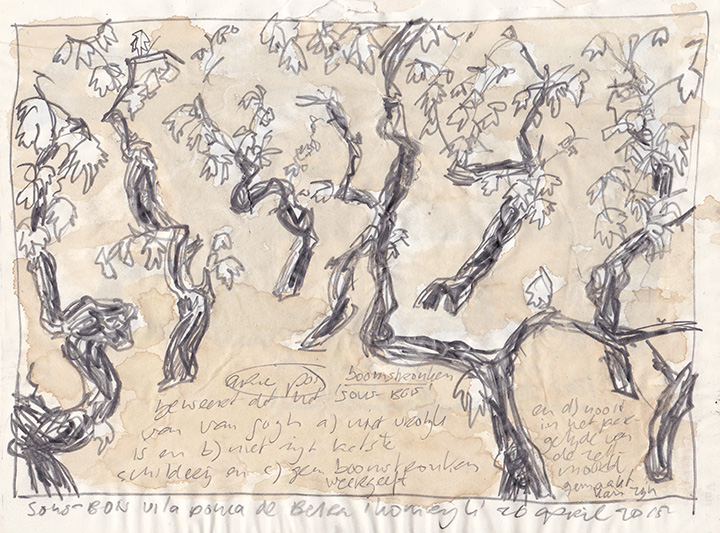 boomstronken
beweert dat het 'sous Bois'
van van gogh a) niet vrolijk
is en b) niet zijn laatste
schilderij en c) geen boomstronken
weergeeft
en d) nooit
in het
van
de zelf
moord
gemaakt
kan zijn
Sous-Bois vila poma de Besra 26 april 2015